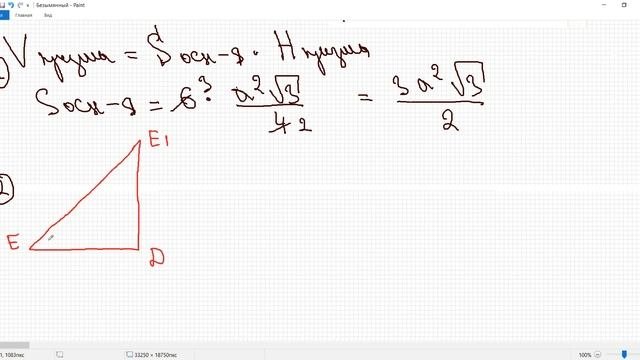 Безымянный - Paint
Файл Главная Вид
V призмы = Sосн-я · Hпризмы
Sосн-я = 6³ a²√3 / 4 2 = 3a²√3 / 2
E1
2
E D
1, 1083пкс 33250 × 18750пкс 100%